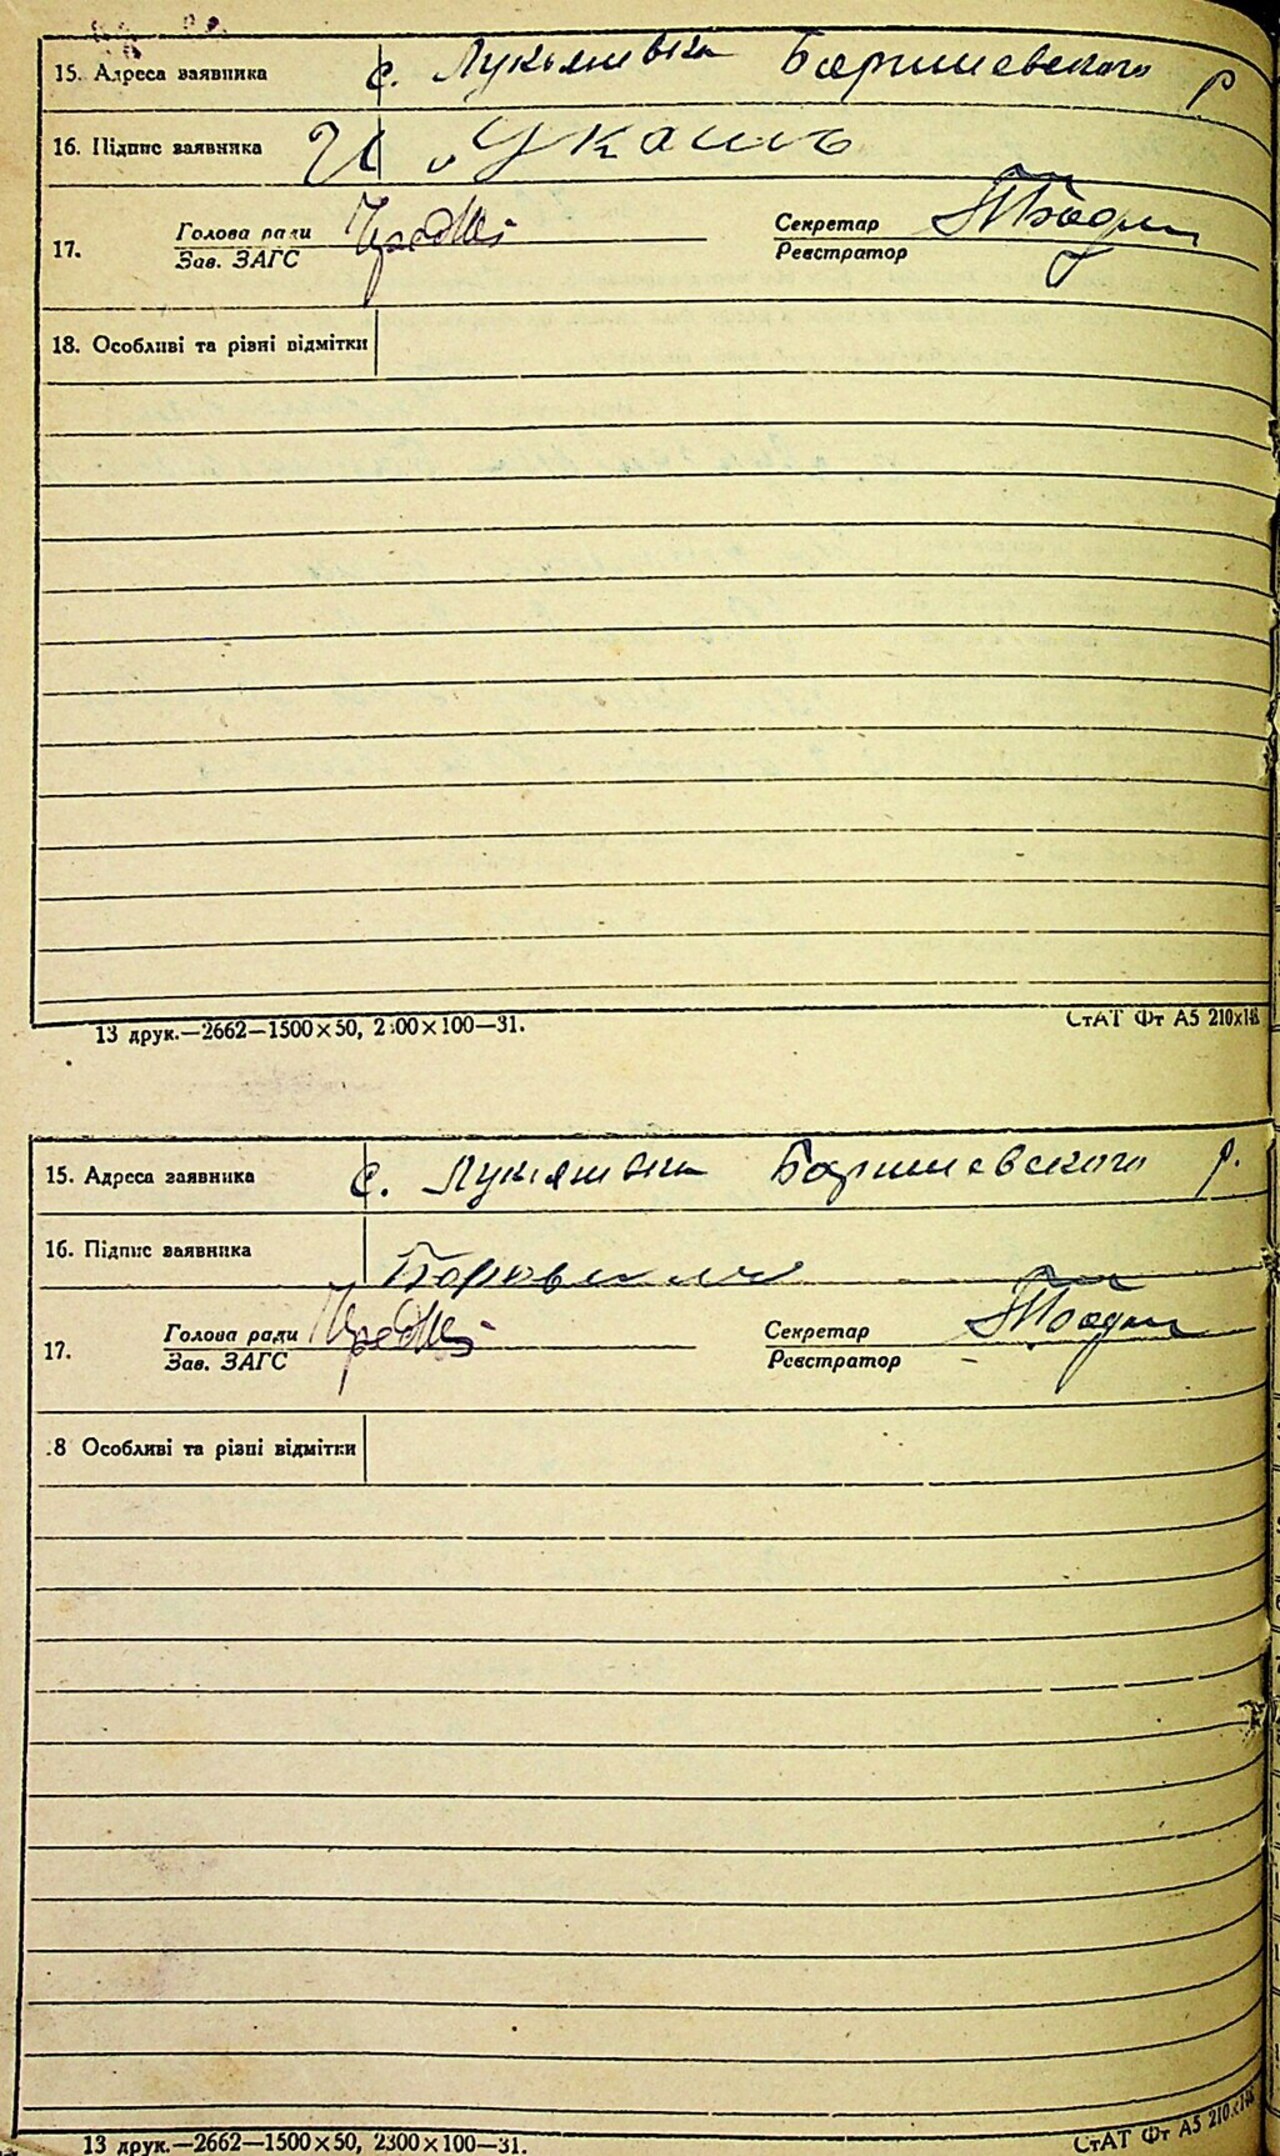 15. Адреса заявника с. Лукьянивка Баришевского р
16. Підпис заявника
17. Голова ради Секретар
Зав. ЗАГС Реєстратор
18. Особливі та різні відмітки
13 друк.—2662—1500×50, 2300×100—31. СтАТ Фт А5 210×148
15. Адреса заявника с. Лукянивка Баришевского р.
16. Підпис заявника
17. Голова ради Секретар
Зав. ЗАГС Реєстратор
18 Особливі та різні відмітки
13 друк.—2662—1500×50, 2300×100—31. СтАТ Фт А5 210×148